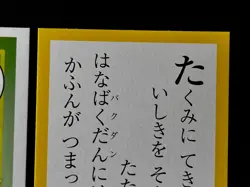 たくみに てき
いしきを そ
たた
はなばくだんに
バクダン
かふんが つまっ